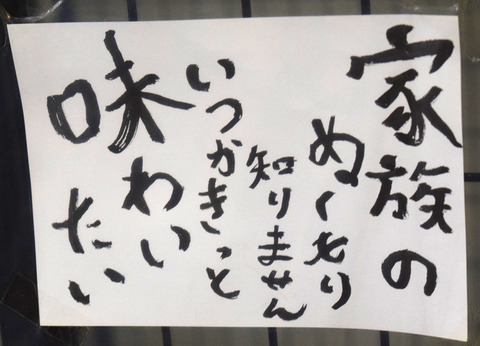 家族の
ぬくもり
知りません
いつかきっと
味わい
たい